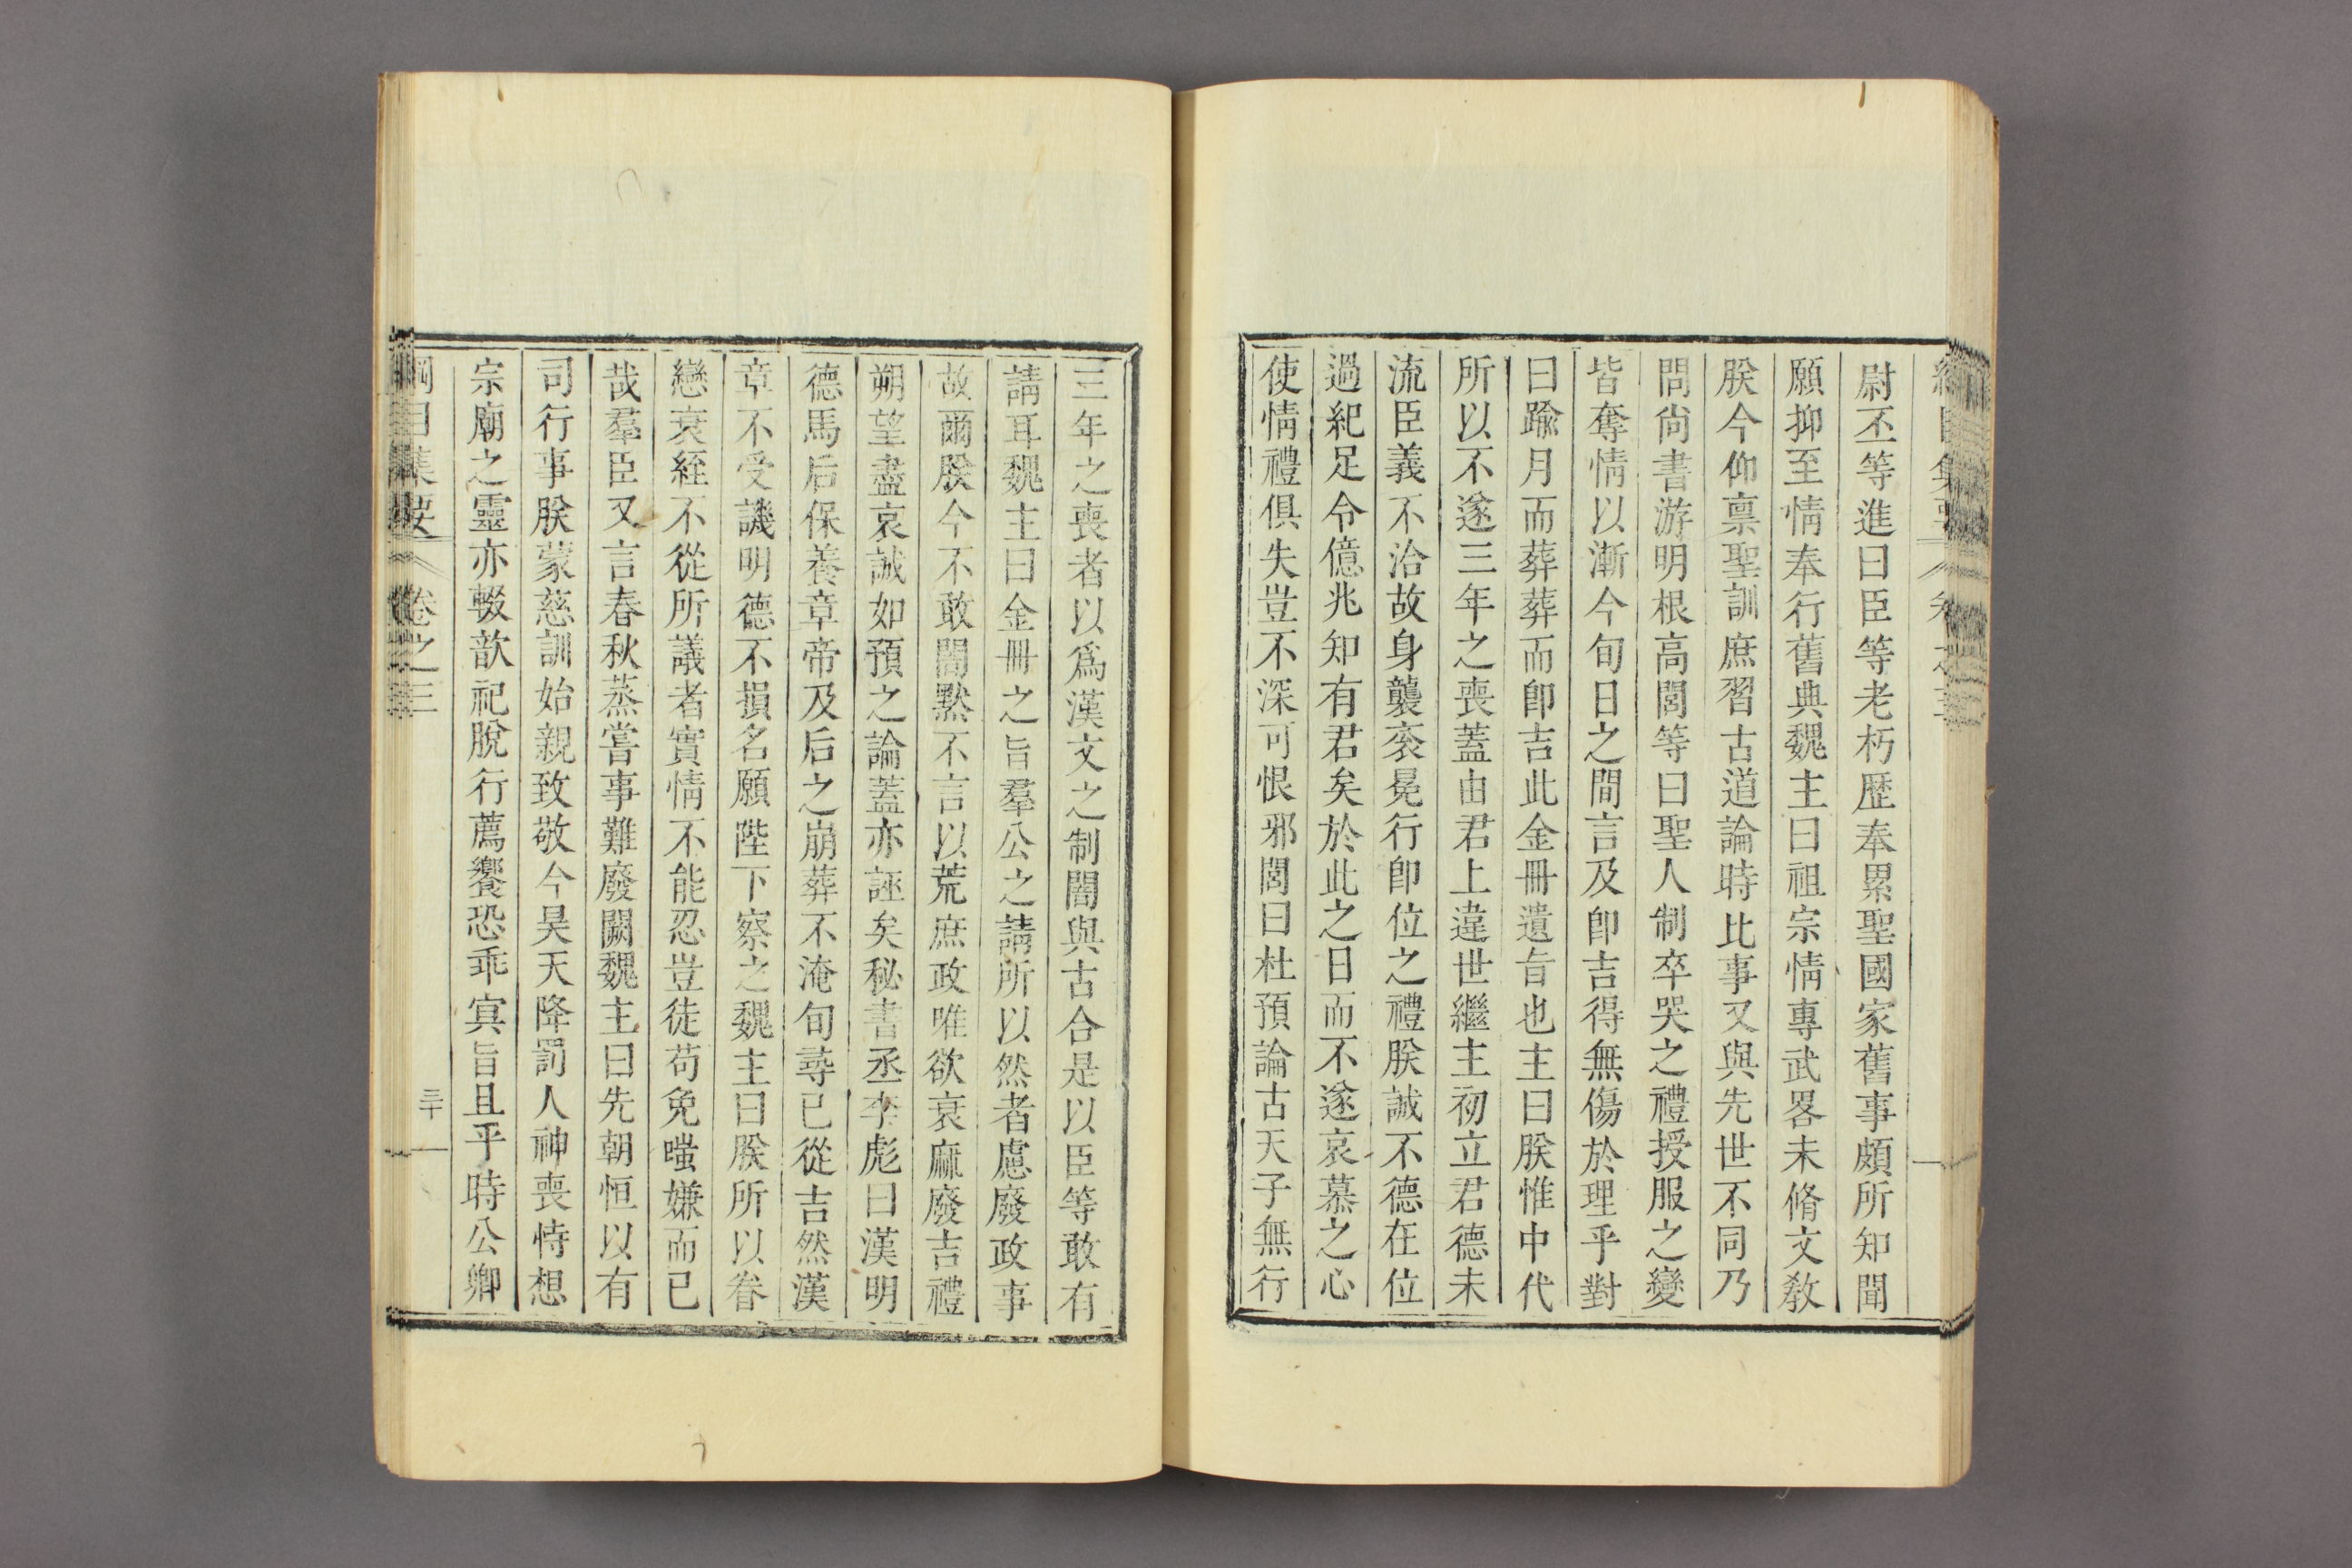 尉丕等進曰臣等老朽歷奉累聖國家舊事頗所知聞
願抑至情奉行舊典魏主曰祖宗情專武畧未脩文敎
朕今仰禀聖訓庶習古道論時比事又與先世不同乃
問尙書游明根高閭等曰聖人制卒哭之禮授服之變
皆奪情以漸今旬日之間言及卽吉得無傷於理乎對
曰踰月而葬葬而卽吉此金冊遺旨也主曰朕惟中代
所以不遂三年之喪蓋由君上違世繼主初立君德未
流臣義不洽故身襲衮冕行卽位之禮朕誠不德在位
過紀足令億兆知有君矣於此之日而不遂哀慕之心
使情禮俱失豈不深可恨邪閭曰杜預論古天子無行
三年之喪者以爲漢文之制闇與古合是以臣等敢有
請耳魏主曰金冊之旨羣公之請所以然者慮廢政事
故爾朕今不敢闇默不言以荒庶政唯欲衰麻廢吉禮
朔望盡哀誠如預之論蓋亦誣矣秘書丞李彪曰漢明
德馬后保養章帝及后之崩葬不淹旬尋已從吉然漢
章不受譏明德不損名願陛下察之魏主曰朕所以眷
戀衰絰不從所議者實情不能忍豈徒苟免嗤嫌而已
哉羣臣又言春秋蒸嘗事難廢闕魏主曰先朝恒以有
司行事朕蒙慈訓始親致敬今昊天降罰人神喪恃想
宗廟之靈亦輟歆祀脫行薦饗恐乖㝠旨且平時公卿
綱目集要 卷之三 三十